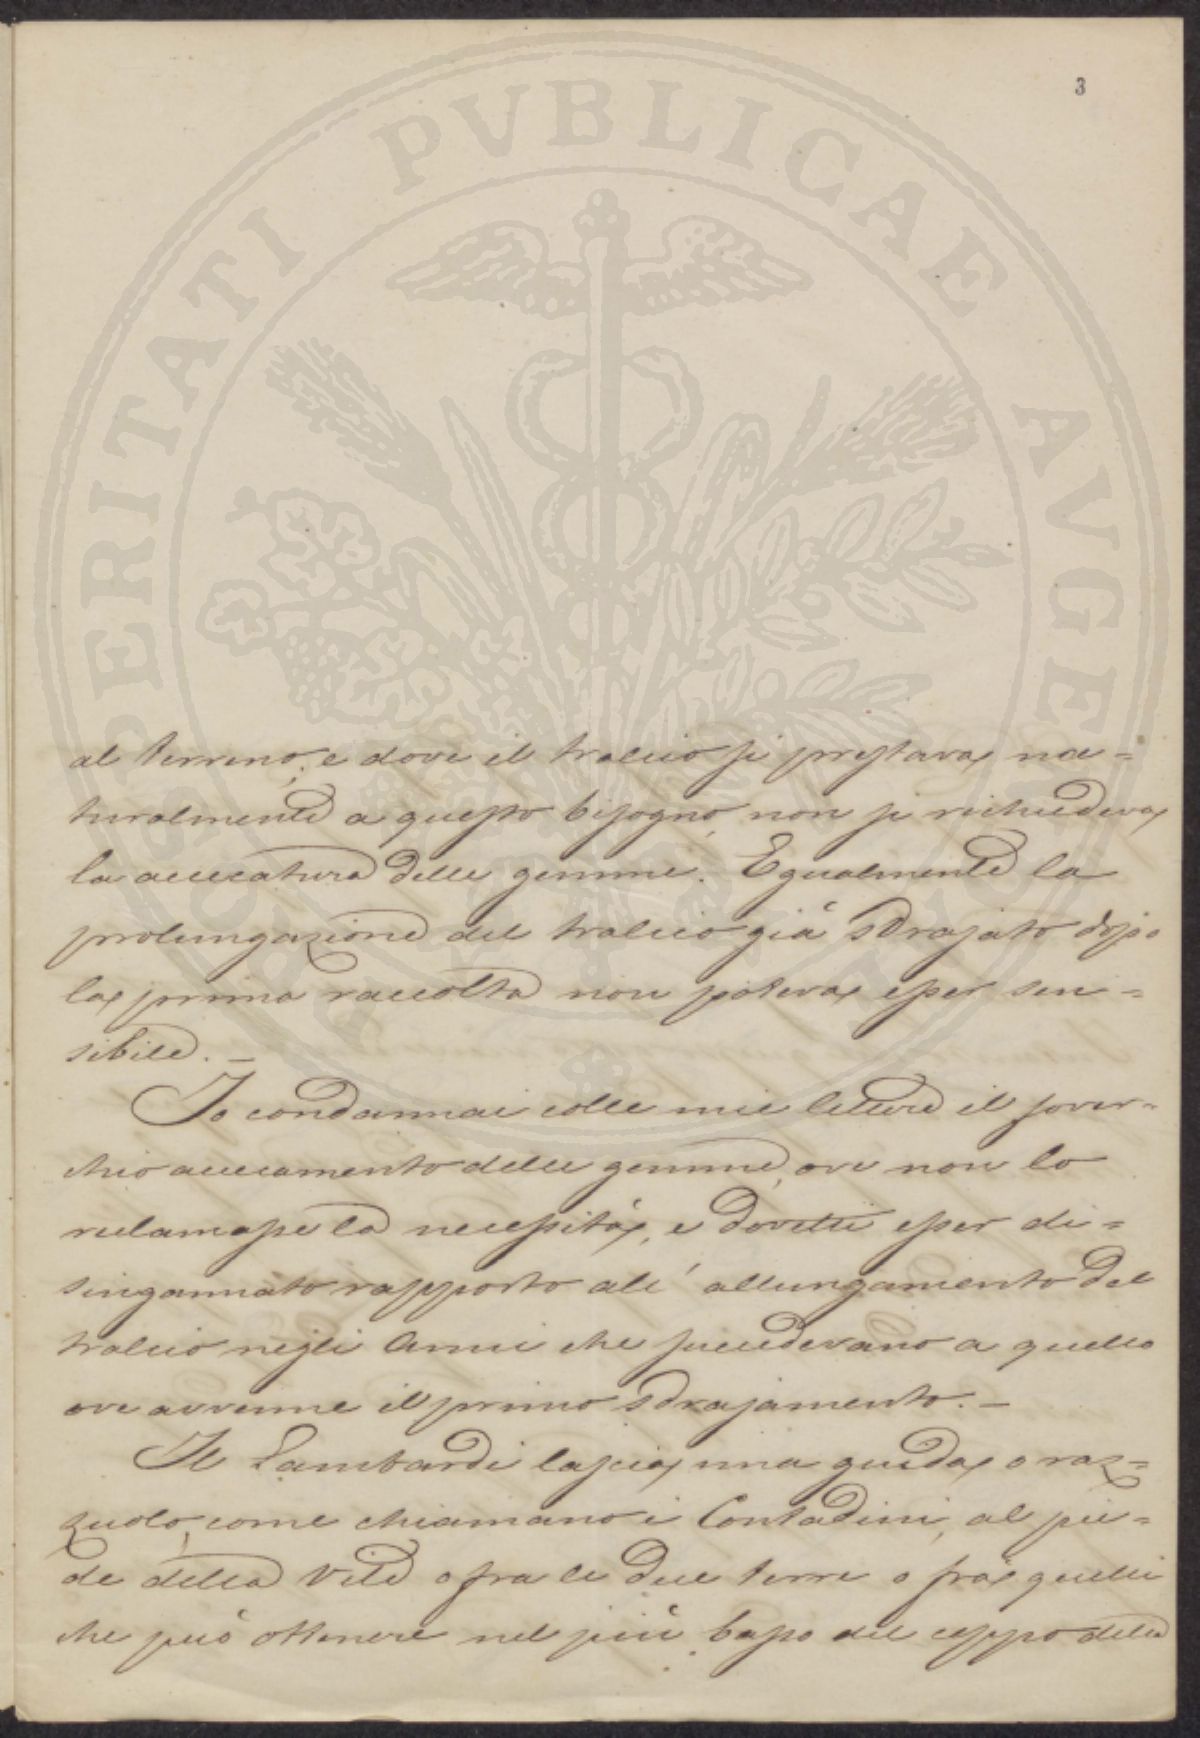 PROSPERITATI PVBLICAE AVGENDAE
3
al terreno; e dove il tralcio si prestava na=
turalmente a questo bisogno, non si richiedeva
la accecatura delle gemme. Egualmente la
prolungazione del tralcio già sdrajato dopo
la prima raccolta non poteva esser sen=
sibile. _
Io condannai colle mie lettere il sover=
chio accecamento delle gemme, ove non lo
reclamasse la necessità, e dovetti esser di=
singannato rapporto all' allungamento del
tralcio negli Anni che succedevano a quello
ove avvenne il primo sdrajamento. _
Il Lambardi lascia una guida, o raz=
zuolo, come chiamano i Contadini, al pie=
de della Vite o fra le due terre o fra quelli
che può ottenere nel più basso del ceppo della